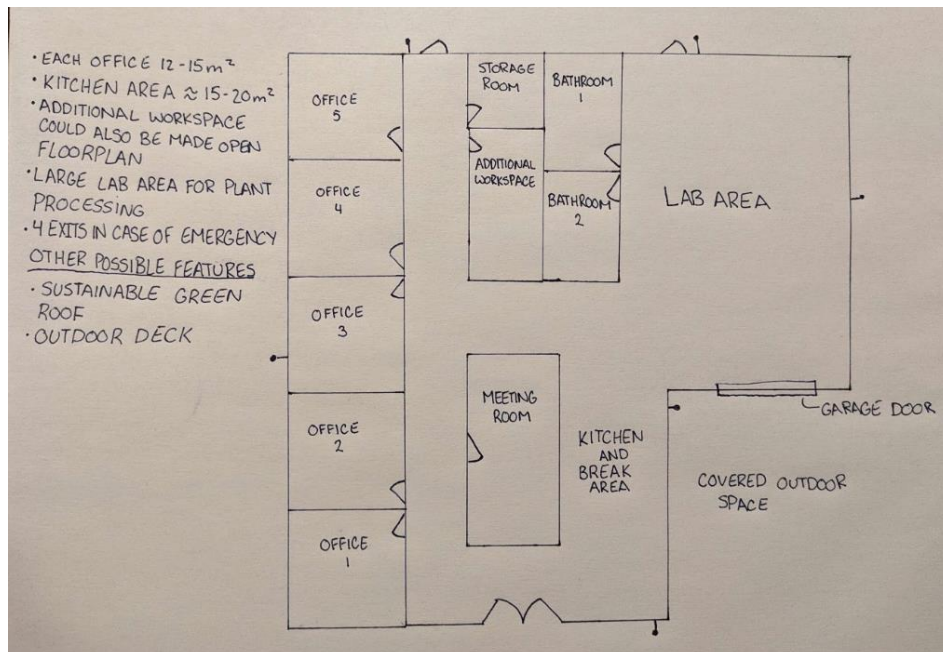 · EACH OFFICE 12-15m²
· KITCHEN AREA ≈ 15-20m²
· ADDITIONAL WORKSPACE
COULD ALSO BE MADE OPEN
FLOORPLAN
· LARGE LAB AREA FOR PLANT
PROCESSING
· 4 EXITS IN CASE OF EMERGENCY
OTHER POSSIBLE FEATURES
· SUSTAINABLE GREEN
ROOF
· OUTDOOR DECK
OFFICE
5
OFFICE
4
OFFICE
3
OFFICE
2
OFFICE
1
STORAGE
ROOM
BATHROOM
1
ADDITIONAL
WORKSPACE
BATHROOM
2
LAB AREA
MEETING
ROOM
KITCHEN
AND
BREAK
AREA
GARAGE DOOR
COVERED OUTDOOR
SPACE